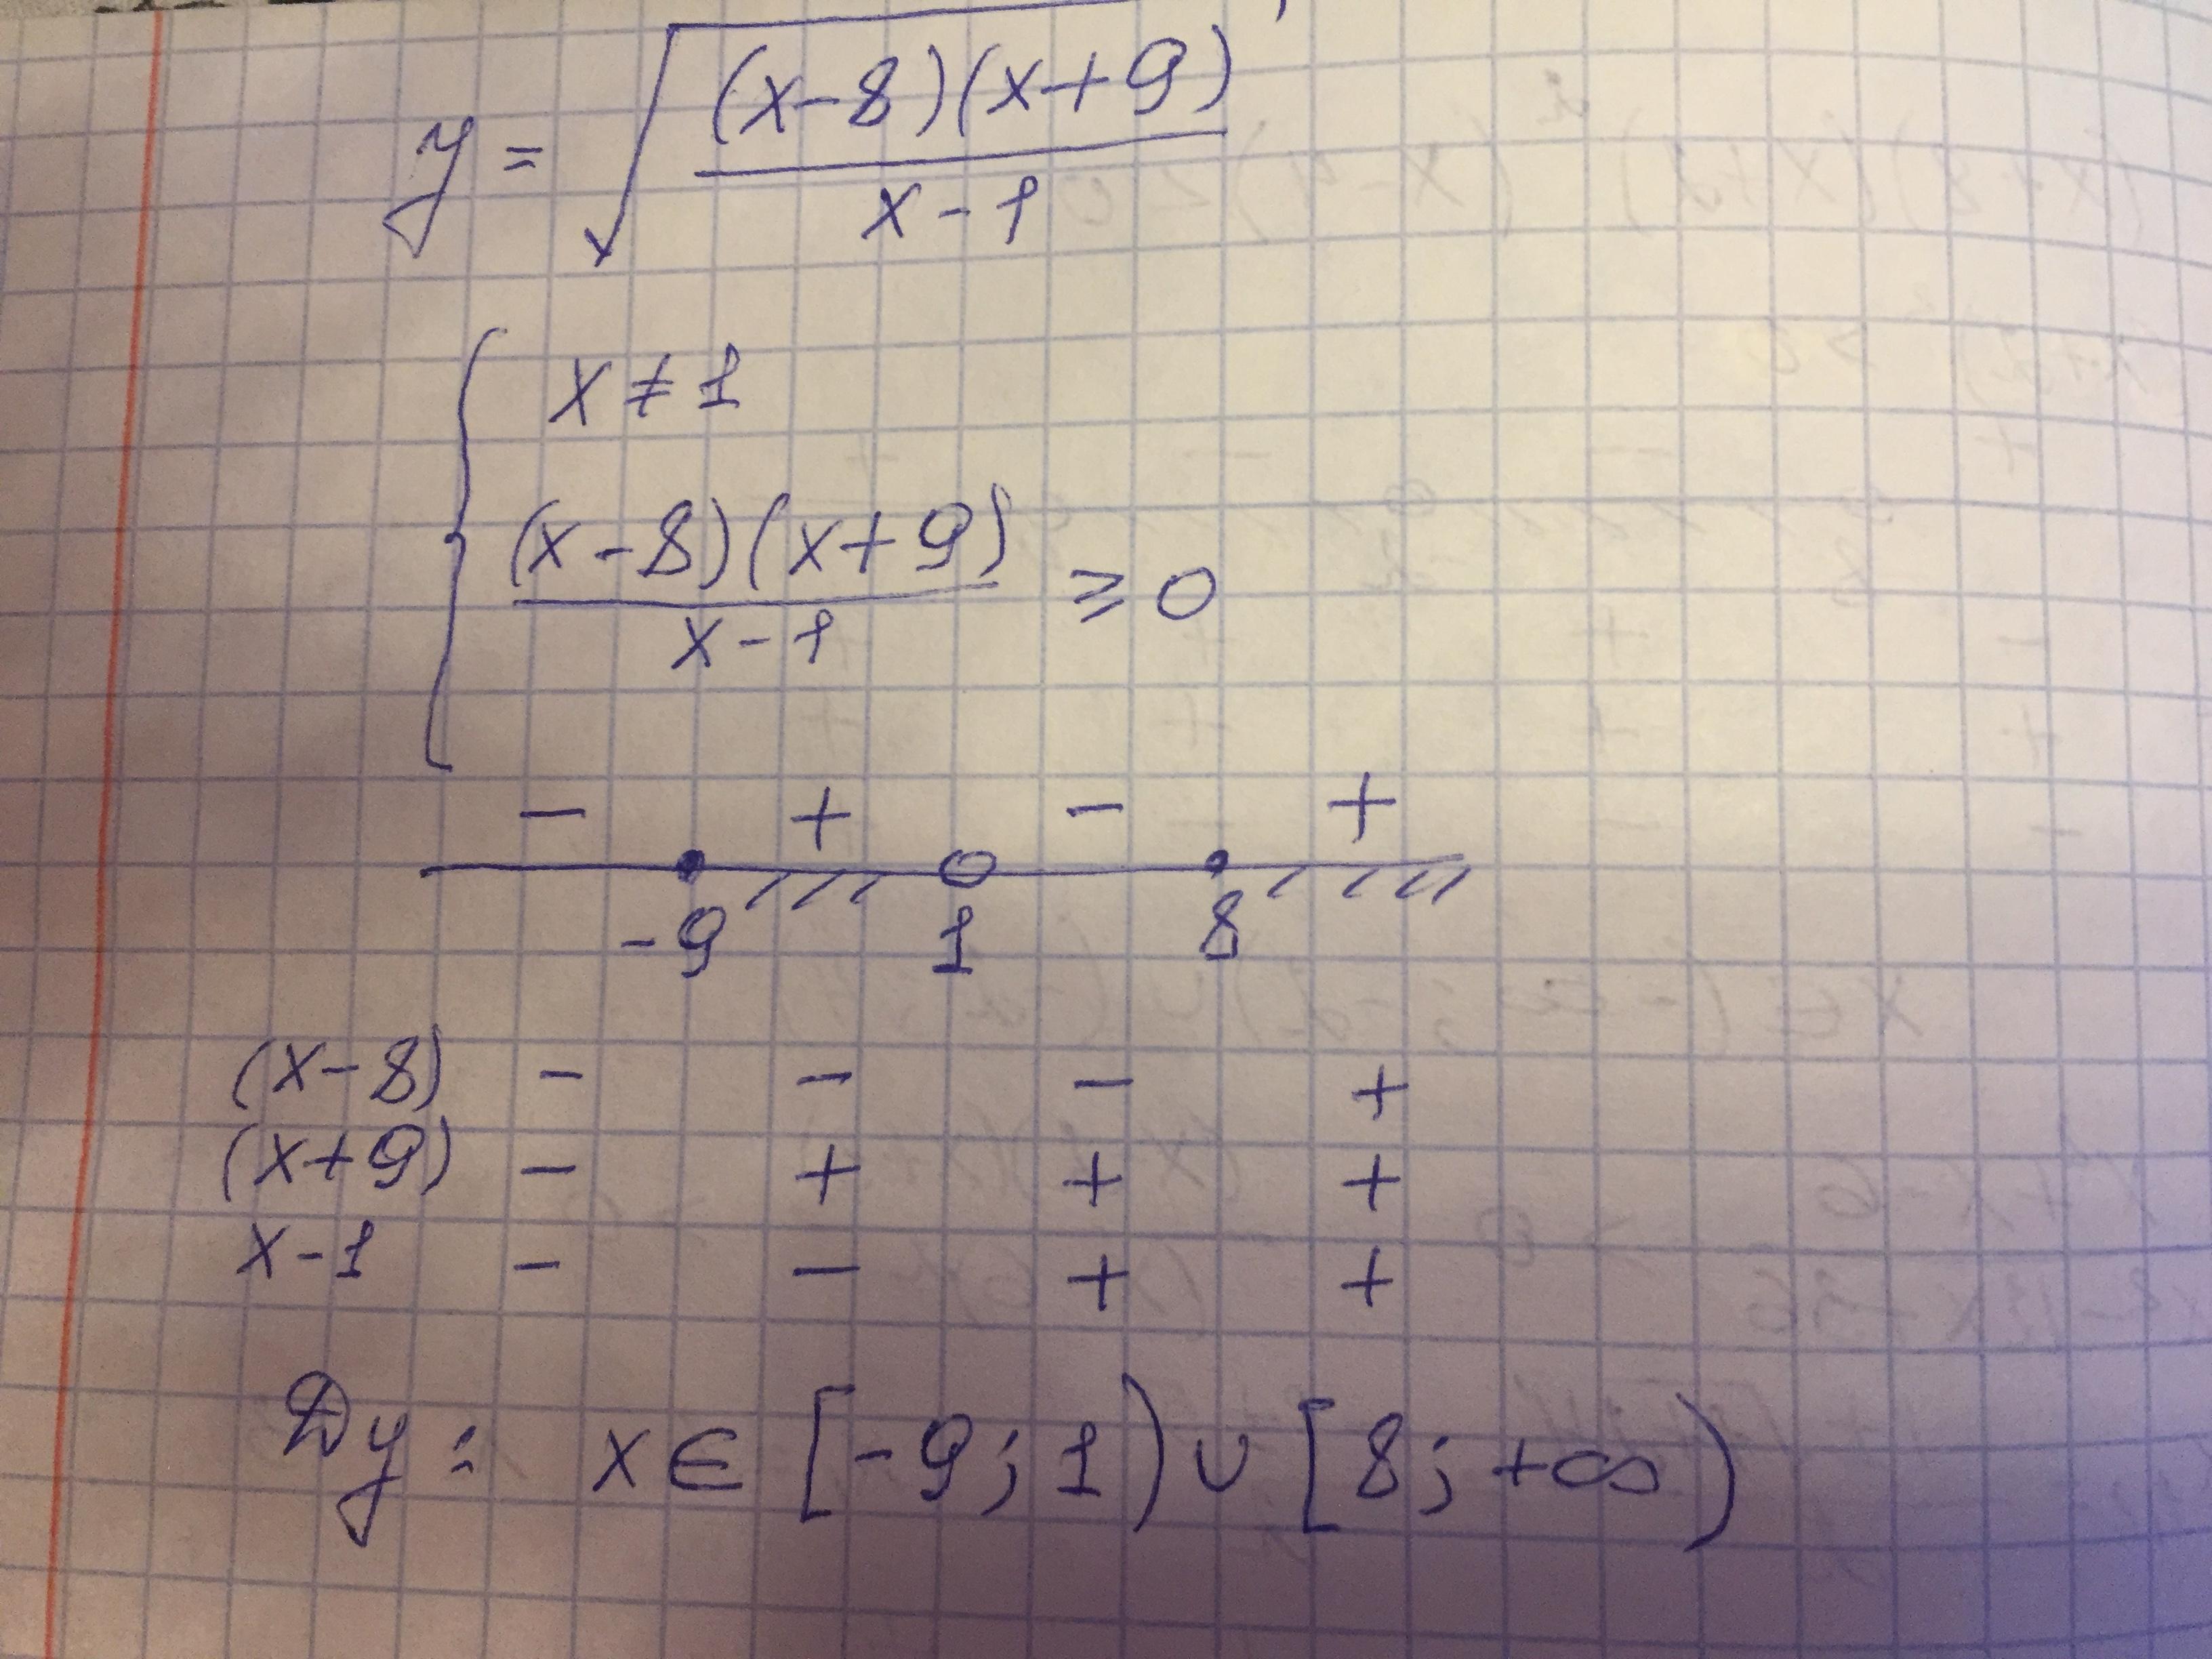 y = √((x-8)(x+9)/(x-1))
{ x ≠ 1
(x-8)(x+9)/(x-1) ≥ 0
- + - +
-9 1 8
(x-8) - - - +
(x+9) - + + +
x-1 - - + +
Dy: x∈ [-9; 1) ∪ [8; +∞)